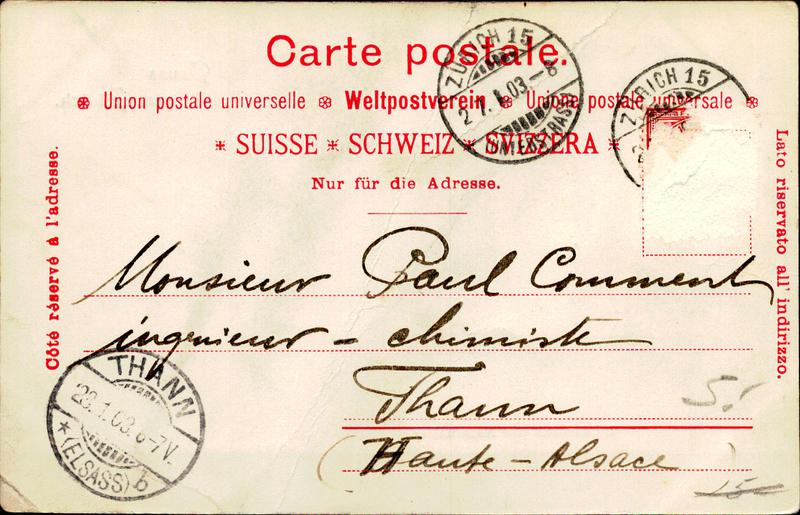 Carte postale.
❇ Union postale universelle ❇ Weltpostverein ❇ Unione postale universale ❇
* SUISSE * SCHWEIZ * SVIZZERA *
Nur für die Adresse.
Côté réservé à l'adresse.
Lato riservato all' indirizzo.
ZÜRICH 15
27.1.03-8
UNTERSTRASS
ZÜRICH 15
Monsieur Paul Comment
ingénieur - chimiste
Thann
(Haute-Alsace
THANN
28.1.03.6-7V.
* (ELSASS) b
5!